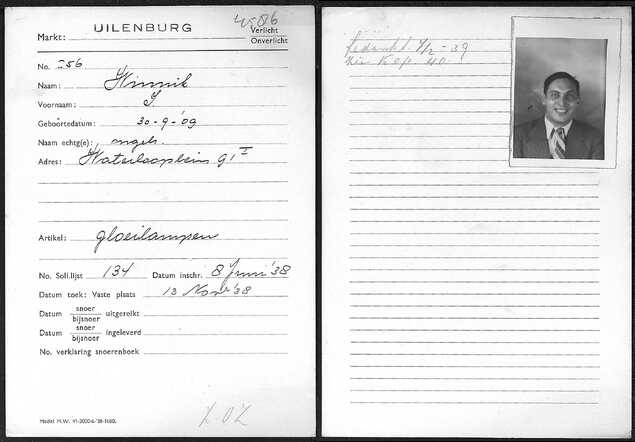 UILENBURG
Markt:
Verlicht
Onverlicht
No. 256
Naam: Winnik
Voornaam: J
Geboortedatum: 30-9-'09
Naam echtg(e): ongeh.
Adres: Waterlooplein 91 I
Artikel: gloeilampen
No. Soll.lijst 134 Datum inschr. 8 Juni '38
Datum toek: Vaste plaats 13 Nov '38
Datum snoer bijsnoer uitgereikt
Datum snoer bijsnoer ingeleverd
No. verklaring snoerenboek
Model M.W.
Bedankt 7/2-39
Zie K.l.p. 40.